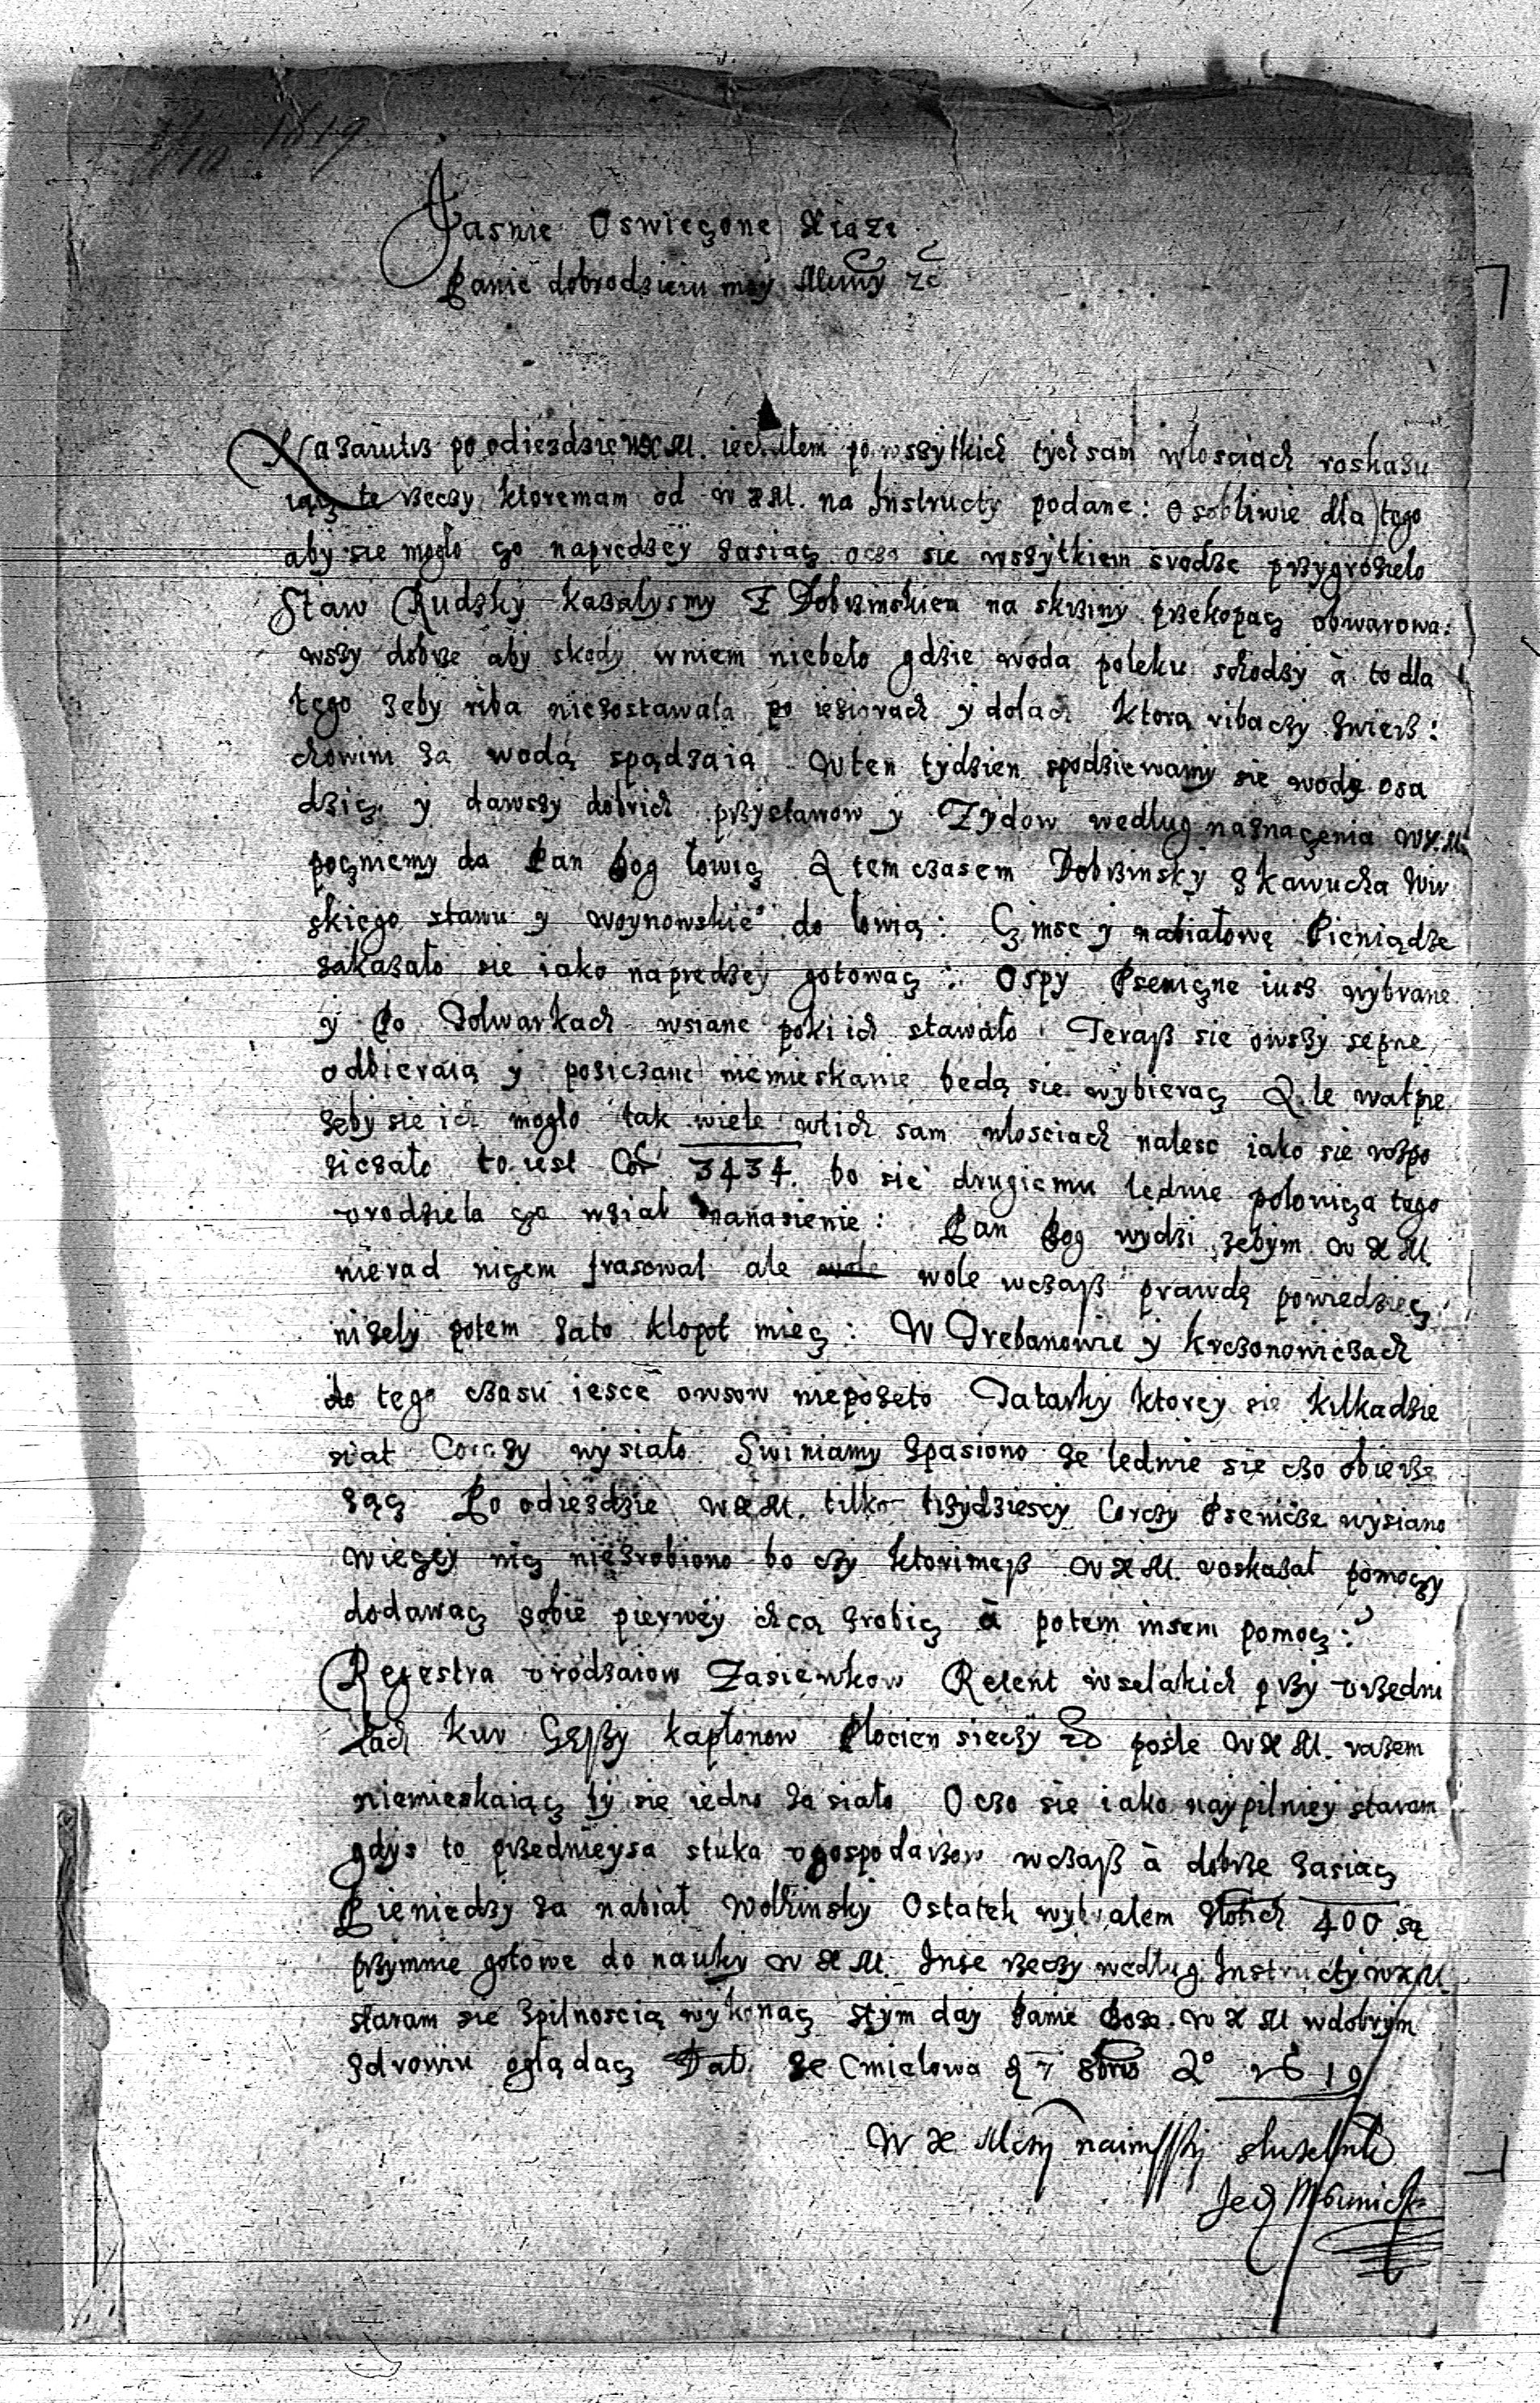 1619
Jasnie Oswieçone Xiąze
Panie dobrodzieiu moy Miłwy zc
Nazaiutrz po odiezdzie WXM. iechałem po wszytkich tych sam wlosciach roskazu
iącz te rzeczy ktore mam od WXM. na Instructy podane: Osobliwie dla tego
aby sie mogło ço napredzey zasiaç oczo sie wszytkiem srodze przygroziło
Staw Rudzky kazalysmy Z Dobrzinskiem na skrziny przekopaç obwarowa:
wszy dobrze aby skody wniem niebeło gdzie woda poleku schodzy à to dla
tego zeby riba niezostawała po ieziorach y dolach Ktorą ribaczy zwierz:
chowini za wodą spądzaią Wten tydzien spodziewamy się wodę osa
dziç y dawszy dobrich przystawow y Zydow według naznaçenia WX.M
poçniemy da Pan Bog łowiç A tem czasem Dobrzinsky z Kawucha Wiw
skiego stawu y woynowskie° do łowią: Czinsc y nabiałowę Pieniądze
zakazało sie iako napredzey gotowaç: Ospy Pseniçne iusz wybrane
y Po Folwarkach wsiane poki ich stawało Teraß sie owszy sepne
odbieraią y pozicząne niemieskanie będą sie wybieraç Ale watpie
zęby sie ich mogło tak wiele wtich sam włosciach nalesc iako sie rozpo
ziczało to iest Cor 3434. bo sie drugiemu ledwie połowiça tego
vrodzieła ço wziął nanasienie: Pan Bog wydzi zebym WXM
nierad niçem frasował ale wole wczaß prawdę powiedzieç
nizely potem zato kłopot mieç: W Grebanowie y Krczonowiczach
do tego czasu iesce owsow niepozęto Tatarky ktorey sie kilkadzie
siat Corczy wysiało Swiniamy Spasiono ze ledwie sie czo obierze
ząç Po odiezdzie WXM. tilko trzydziescy Corczy Pseniçze wysiano
wieçey niç niezrobiono bo czy ktorimeß WXM. roskazał pomoçzy
dodawaç sobie pierwey chcą zrobiç à potem insem pomoç:
Regestra vrodzaiow Zasiewkow Retent wselakich przy vrzedni
kach kur Gęszy kapłonow Płocien sieczy zc posle WXM. razem
niemieskaiąç by sie iedno zasiało Oczo sie iako naypilniey staram
gdys to przednieysa stuka v gospodarzow wczaß à dobrze zasiaç
Pieniedzy za nabiał Wolhinsky Ostatek wybrałem złotich 400 są
przymnie gotowe do nauky WXM. Inse rzeczy według Instructy WXM
staram sie zpilnoscią wykonaç stym day Panie Boze WXM wdobrym
zdrowiu oglądaç Dat ze Cmielowa d 7 8bris A° 1619
WX Mczy naimszy sluzebnik